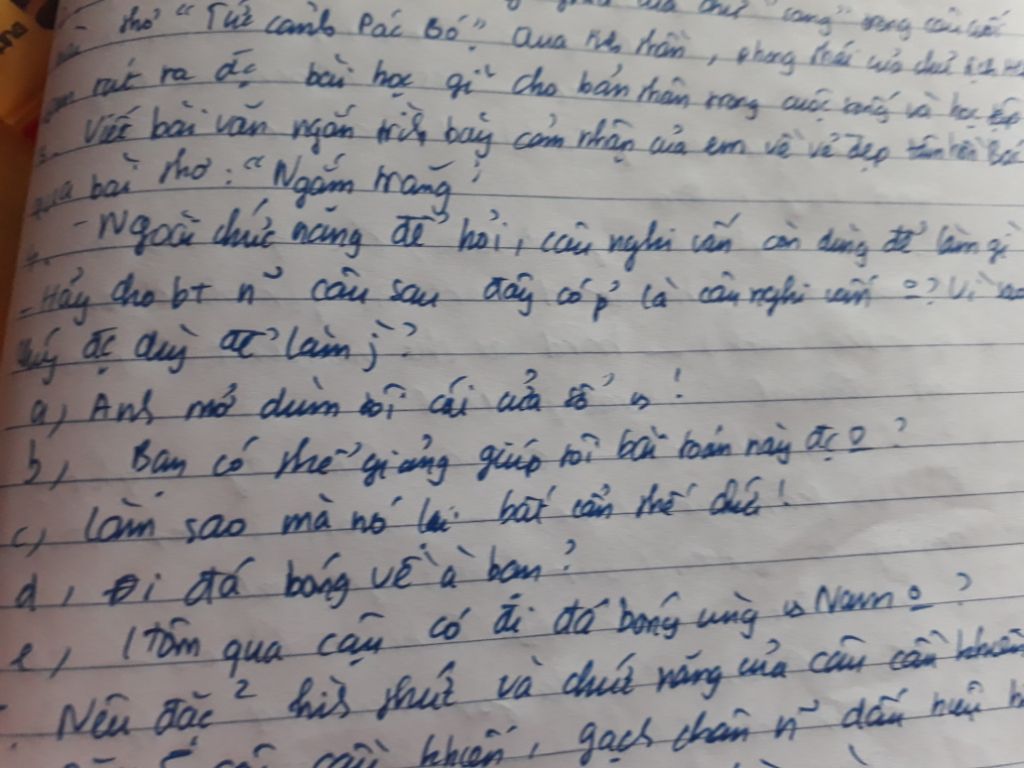 chữ "sang" trong câu cuối
thơ "Tức cảnh Pác Bó". Qua tinh thần, phong thái của chủ tịch
em rút ra đc bài học gì cho bản thân trong cuộc sống và học tập
3. Viết bài văn ngắn trình bày cảm nhận của em về vẻ đẹp tâm hồn Bác
qua bài thơ: "Ngắm trăng"
- Ngoài chức năng để hỏi, câu nghi vấn còn dùng để làm gì
- Hãy cho bt n~ câu sau đây có p' là câu nghi vấn o? Vì sao
đc dùng để làm j?
a, Anh mở dùm tôi cái cửa sổ!
b, Bạn có thể giảng giúp tôi bài toán này đc o?
c, Làm sao mà nó lại bất cẩn thế chứ!
d, Đi đá bóng về à bạn?
e, Hôm qua cậu có đi đá bóng cùng vs Nam o?
Nêu đặc² hình thức và chức năng của câu cầu khiến
câu cầu khiến, gạch chân n~ dấu hiệu